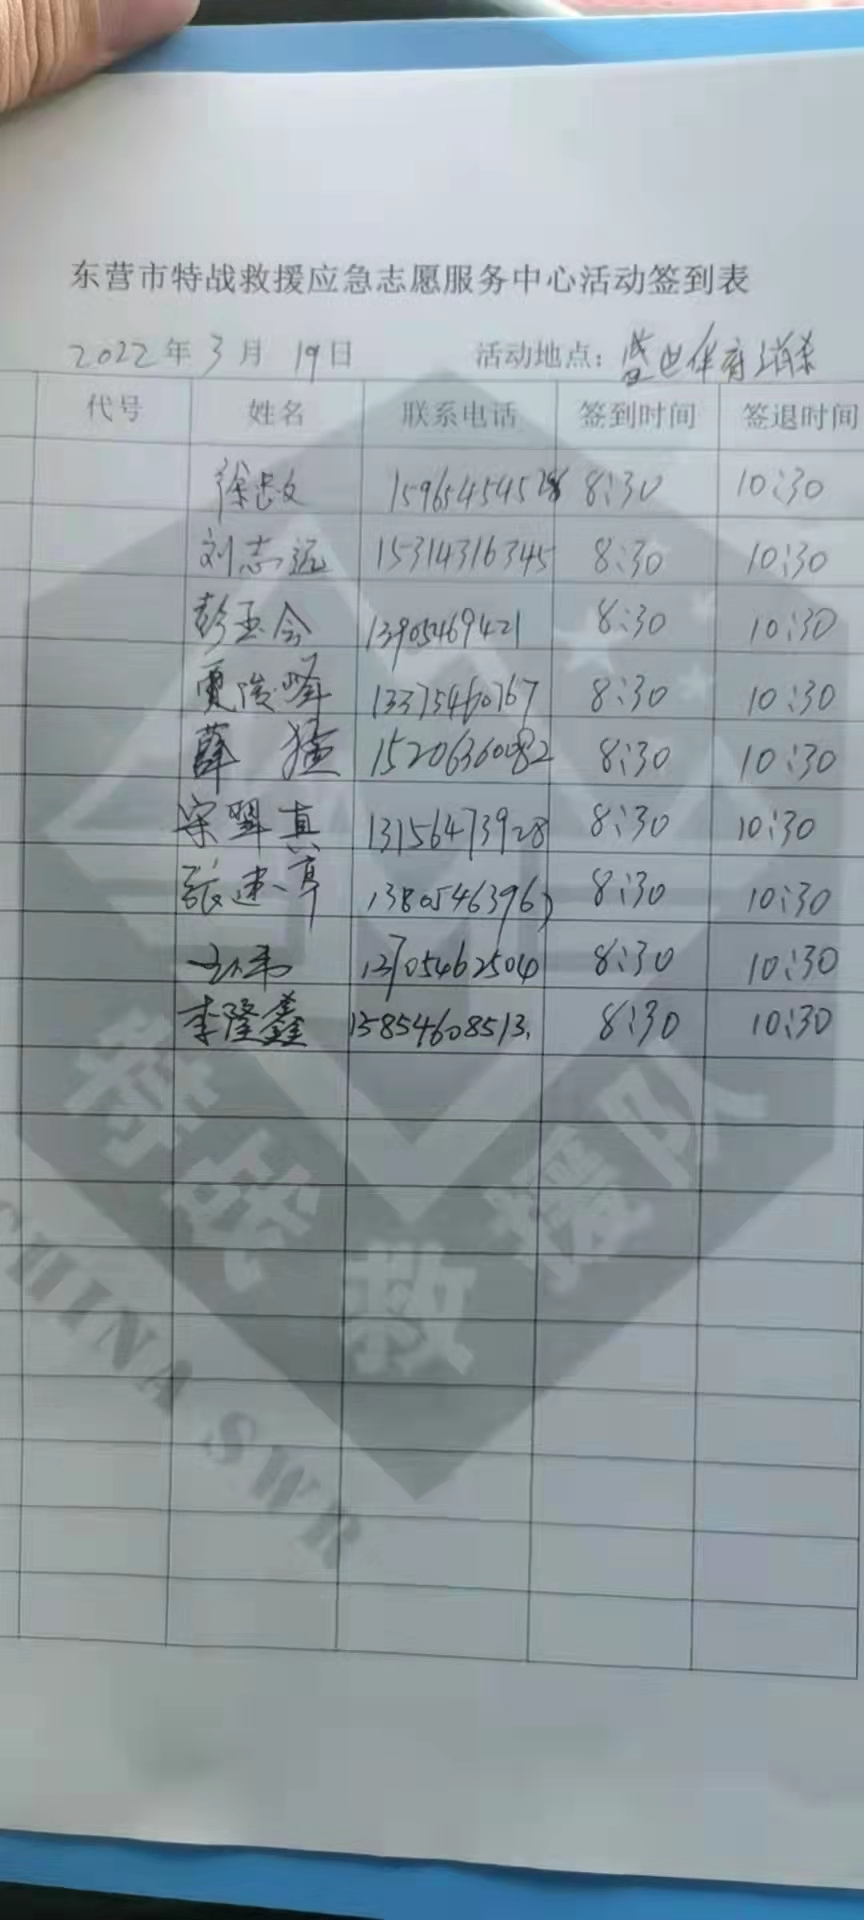 东营市特战救援应急志愿服务中心活动签到表
2022年3月19日 活动地点：盛世体育消杀
代号 姓名 联系电话 签到时间 签退时间
徐忠文 8:30 10:30
刘志远 15314316345 8:30 10:30
彭玉会 13905469421 8:30 10:30
贾俊峰 13375460767 8:30 10:30
薛猛 15206360082 8:30 10:30
宋翠真 13156473928 8:30 10:30
张建亭 8:30 10:30
13705462504 8:30 10:30
李隆鑫 15854608513. 8:30 10:30
救援队
CHINA SWR